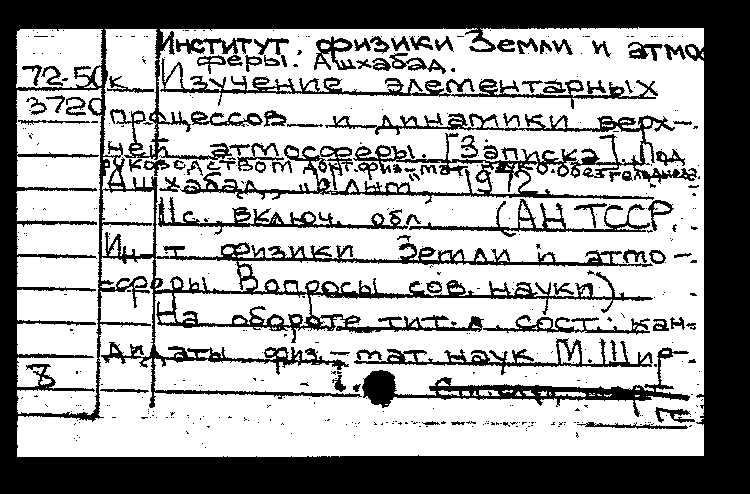 Институт физики Земли и атмос
феры. Ашхабад.
72-50к Изучение элементарных
3720 процессов и динамики верх-
ней атмосферы. [Записка]. Под
руководством докт. физ.-мат. наук О. Овезгельдыева.
Ашхабад, "Ылым", 1972.
11с., включ. обл. (АН ТССР.
Ин-т физики Земли и атмо-
сферы. Вопросы сов. науки).
На обороте тит. л. сост.: кан-
дидаты физ.-мат. наук М. Шир-
8